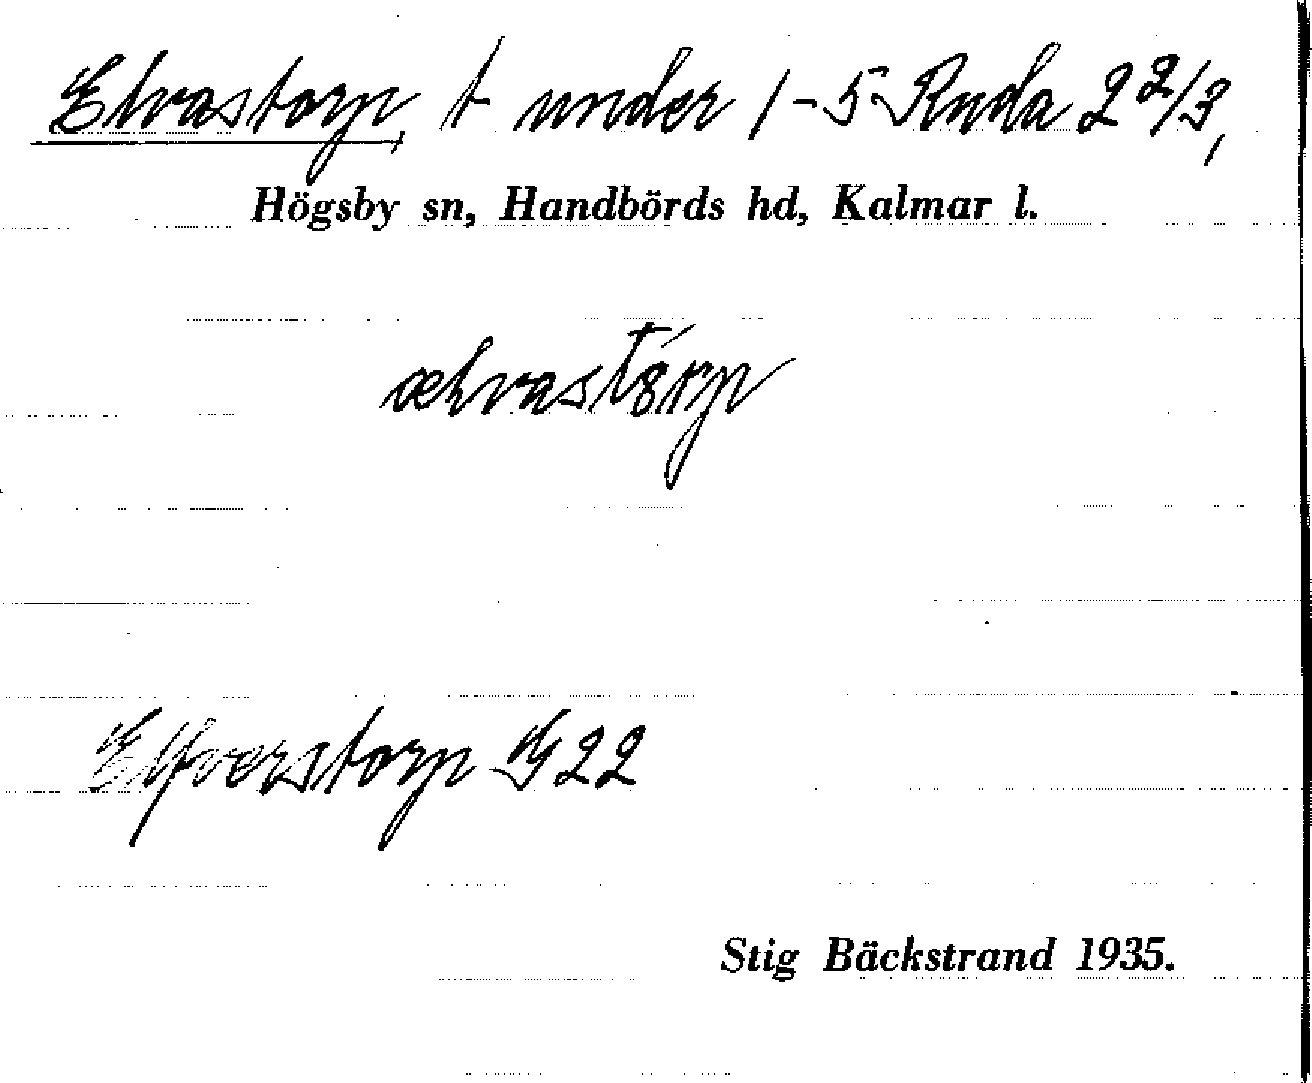 Elvastorp, t under 1-5 Ruda 2 2/3,
Högsby sn, Handbörds hd, Kalmar l.
ælvastórp
Elfverstorp G22
Stig Bäckstrand 1935.